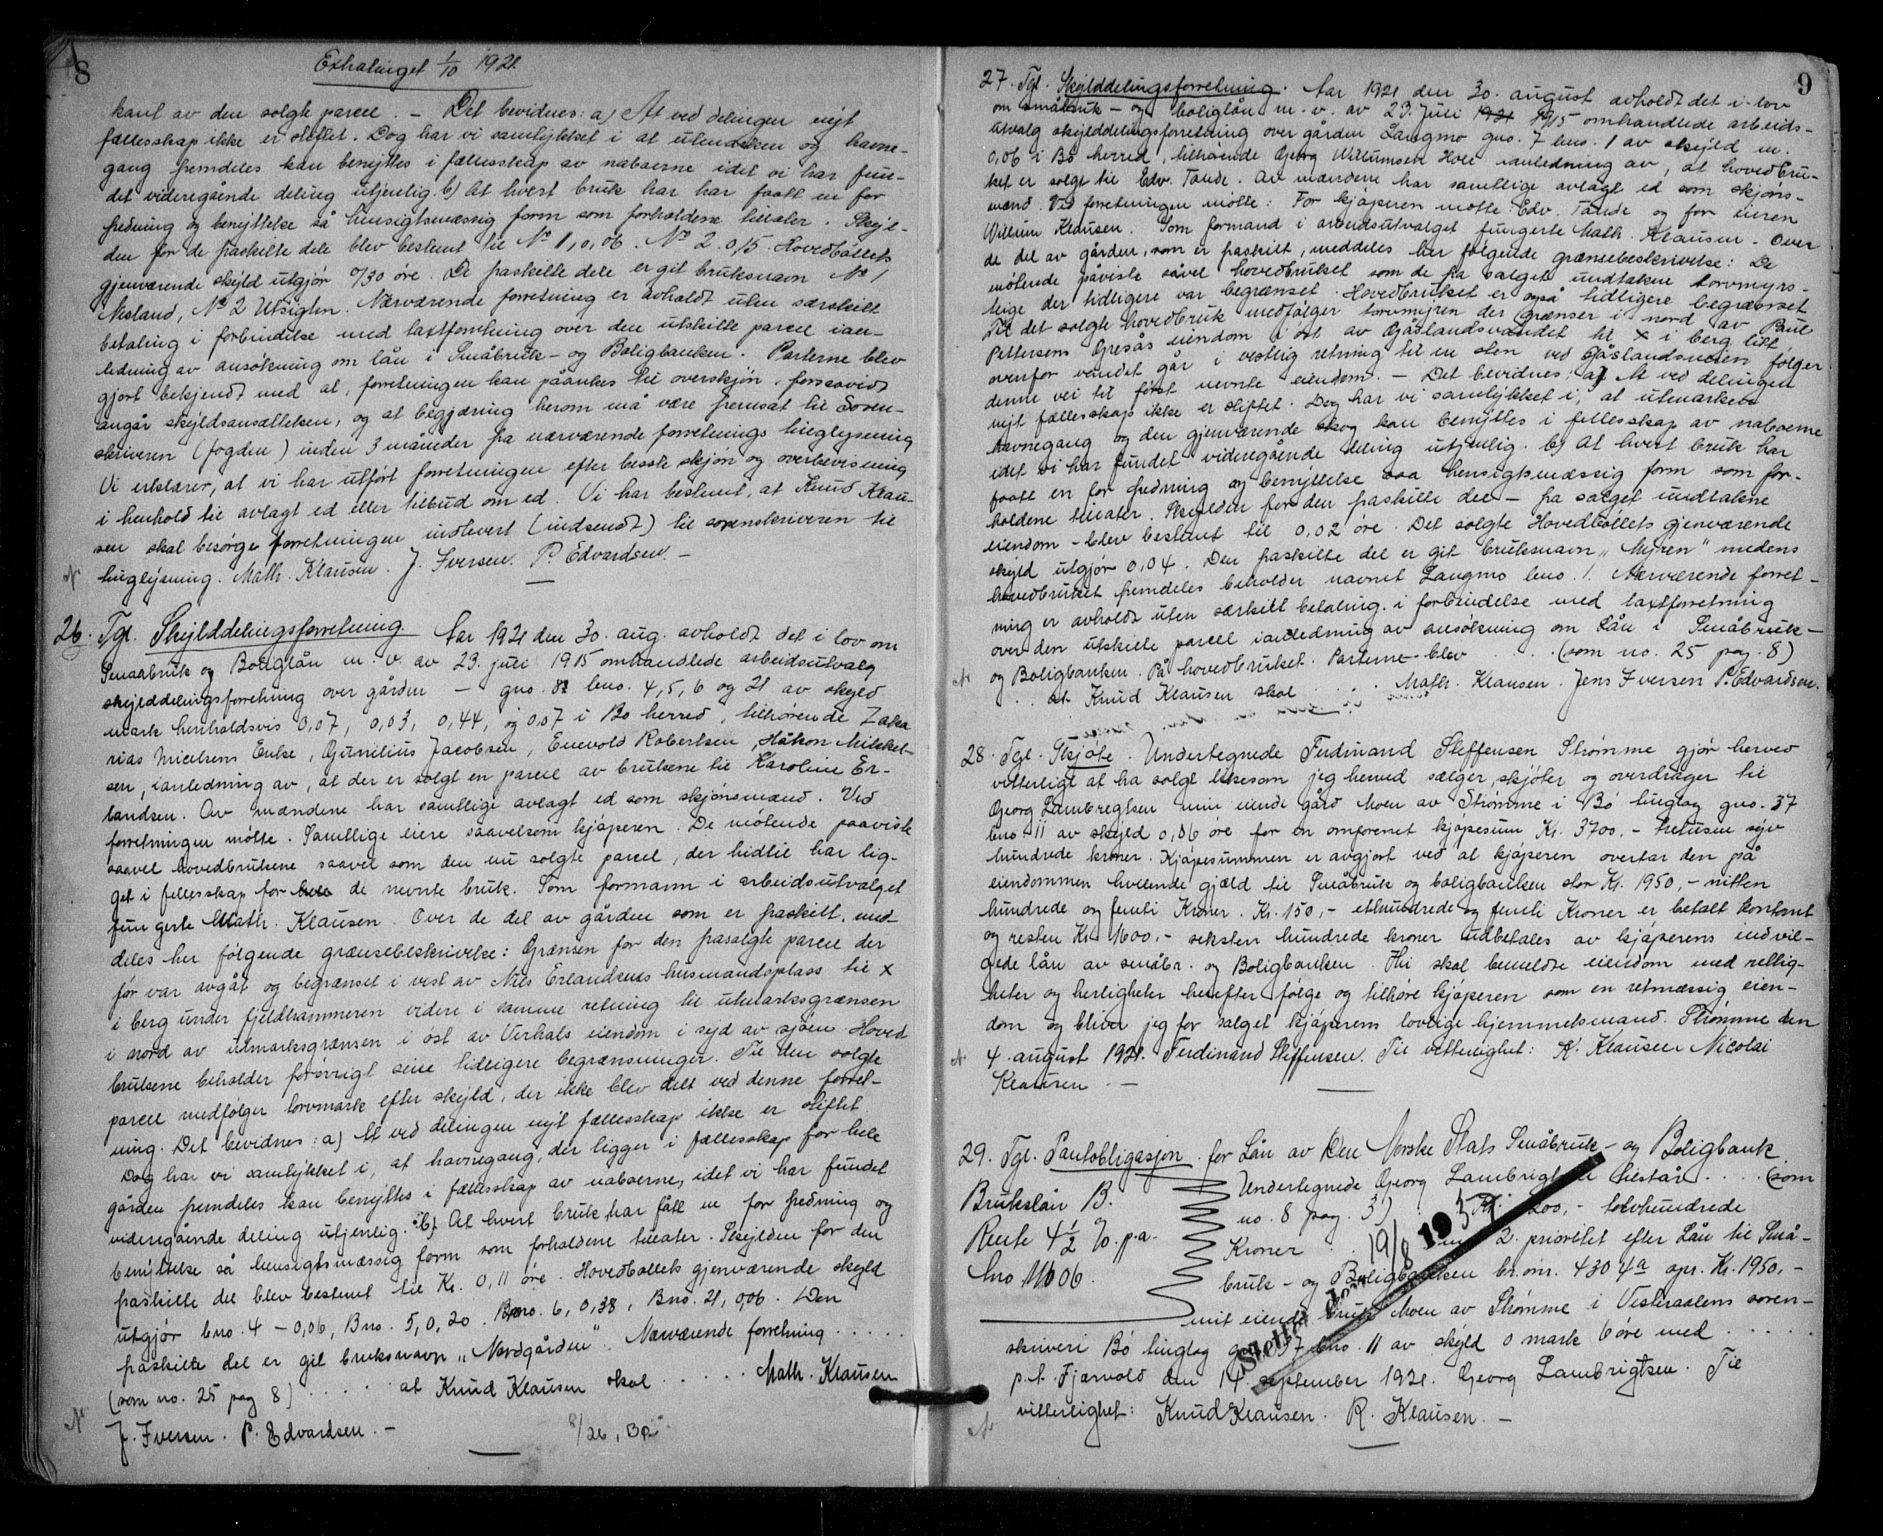 8
Extratinget 1/10 1921.
kant av den solgte parcel. - Det bevidnes: a) At ved delingen nyt
fællesskap ikke er stiftet. Dog har vi samtykket i at utmarken og havne-
gang fremdeles kan benyttes i fællesskap av naboerne idet vi har fun-
det videregående deling utjenlig. b) At hvert bruk har har faatt en for
fredning og benyttelse så hensigtsmæssig form som forholdene tillater. Skyl-
den for de fraskilte dele blev bestemt til No 1, 0,06. No 2 0,15. Hovedbøllets
gjenværende skyld utgjør 0/30 øre. De fraskilte dele er git bruksnavn No 1
Nesland, No 2 Utsigten. Nærværende forretning er avholdt uten særskilt
betaling i forbindelse med taxtforretning over den utskilte parcel i an-
ledning av ansøkning om lån i Småbruk- og Boligbanken. Parterne blev
gjort bekjendt med at, forretningen kan påankes til overskjøn, forsaavidt
angår skyldansættelsen, og at begjæring herom må være fremsat til Soren-
skriveren (fogden) inden 3 måneder fra nærværende forretnings tinglysning
Vi erklærer, at vi har utført forretningen efter bedste skjøn og overbevisning
i henhold til avlagt ed eller tilbud om ed. Vi har bestemt, at Knud Klau-
sen skal besørge forretningen indlevert (indsendt) til sorenskriveren til
tinglysning. Math. Klausen. J. Iversen. P. Edvardsen. -
26. Tgl. Skylddelingsforretning Aar 1921 den 30. aug. avholdt det i lov om
Smaabruk og Boliglån m. v. av 23. juli 1915 omhandlede arbeidsutvalg
skylddelingsforretning over gården - gno. 81 bno. 4, 5, 6 og 21 av skyld
mark henholdsvis 0,07, 0,03, 0,44, og 0,07 i Bø herred, tilhørende Zaka
rias Nicelsens Enke, Gunilius Jacobsen, Enevold Robertsen, Håkon Mikkel-
sen, i anledning av, at der er solgt en parcel av brukene til Karoline Er-
landsen. Av mændene har samtlige avlagt ed som skjønsmænd. Ved
forretningen møtte. Samtlige eiere saavelsom kjøperen. De møtende paaviste
saavel hovedbrukene saavel som den nu solgte parcel, der hidtil har lig-
get i fellesskap for hele de nevnte bruk. Som formann i arbeidsutvalget
fungerte Math. Klausen. Over de del av gården som er fraskilt, med-
deles her følgende grænsebeskrivelse: Grænsen for den frasolgte parcel der
før var avgåt og begrænset i vest av Nils Erlandsens husmandsplass til x
i berg under fjeldhammeren videre i samme retning til utmarksgrænsen
i nord av utmarksgrænsen i øst av Verhals eiendom i syd av sjøen Hoved
brukene beholder forøvrigt sine tidligere begrænsninger. Til den solgte
parcel medfølger torvmark efter skyld, der ikke blev delt ved denne forret-
ning. Det bevidnes: a) At ved delingen nyt fællesskap ikke er stiftet.
Dog har vi samtykket i, at havnegang, der ligger i fællesskap for hele
gården fremdeles kan benyttes i fællesskap av naboerne, idet vi har fundet
videregående deling utjenlig. b) At hvert bruk har fått en for fredning og
benyttelse så hensigtsmæssig form som forholdene tillater. Skylden for den
fraskilte del blev bestemt til Kr. 0,11 øre. Hovedbøllets gjenværende skyld
utgjør bno. 4 - 0,06, Bno. 5, 0,20. Bno. 6, 0,38, Bno. 21, 0,06. Den
fraskilte del er git bruksnavn „Nordgården". Nærværende forretning .....
(som no. 25 pag 8) ..... at Knud Klausen skal ..... Math. Klausen
J. Iversen. P. Edvardsen. -
8/26, Bp
9
27. Tgl. Skylddelingsforretning. Aar 1921 den 30. august avholdt det i lov
om småbruk- og boliglån m. v. av 23. Juli 1921 1915 omhandlede arbeids-
utvalg skylddelingsforretning over gården Langmo gno. 7 bno. 1 av skyld m.
0,06 i Bø herred, tilhørende Georg Willumsen Hole i anledning av, at hovedbru-
ket er solgt til Edv. Tande. Av mændene har samtlige avlagt ed som skjøns-
mænd. Ved forretningen møtte: For kjøperen møtte: Edv. Tande og for eieren
Willum Klausen. Som formand i arbeidsutvalget fungerte Math. Klausen. Over
de del av gården, som er fraskilt, meddeles her følgende grænsebeskrivelse: De
møtende påviste såvel hovedbruket som de fra salget undtakne torvmyrs-
teige der tidligere var begrænset. Hovedbruket er også tidligere begrænset
Til det solgte hovedbruk medfølger torvmyren der grænser i nord av Paul
Pettersens Gresås eiendom i øst av Gåslandsvandet til x i berg litt
ovenfor vandet går i vestlig retning til en sten ved Gåslandsveien følger
denne vei til først nevnte eiendom. - Det bevidnes: a) At ved delingen
nyt fællesskap ikke er stiftet. Dog har vi samtykket i, at utmarkens
havnegang og den gjenværende skog kan benyttes i fellesskap av naboerne
idet vi har fundet videregående deling utjenlig. b) At hvert bruk har
faatt en for fredning og benyttelse saa hensigtsmæssig form som for-
holdene tillater. Skylden for den fraskilte del - fra salget undtakne
eiendom - blev bestemt til 0,02 øre. Det solgte Hovedbøllets gjenværende
skyld utgjør 0,04. Den fraskilte del er git bruksnavn „Myren" medens
hovedbruket fremdeles beholder navnet Langmo bno. 1. Nærværende forret-
ning er avholdt uten særskilt betaling i forbindelse med taxtforretning
over den utskilte parcel i anledning av ansøkning om Lån i Småbruk-
og Boligbanken. På hovedbruket. Parterne blev ..... (som no. 25 pag. 8)
.. at Knud Klausen skal ..... Math. Klausen. Jens Iversen P. Edvardsen.
28. Tgl. Skjøte. Undertegnede Ferdinand Steffensen Strømme gjør herved
vitterligt at ha solgt likesom jeg herved sælger, skjøter og overdrager til
Georg Lambregtsen min eiende gård Moen av Strømme i Bø tinglag gno. 37
bno. 11 av skyld 0,06 øre for en omforenet kjøpesum Kr. 3700,- tretusen syv
hundrede kroner. Kjøpesummen er avgjort ved at kjøperen overtar den på
eiendommen hvilende gjæld til Småbruk og boligbanken stor Kr. 1950,- nitten
hundrede og femti Kroner. Kr. 150,- ethundrede og femti Kroner er betalt kontant
og resten Kr. 1600,- seksten hundrede kroner utbetales av kjøperens indvil-
gede lån av småbr. og Boligbanken. Thi skal bemeldte eiendom med rettig-
heter og herligheter herefter følge og tilhøre kjøperen som en retmæssig eien-
dom og bliver jeg for salget kjøperens lovlige hjemmelsmand. Strømme den
4. august 1921. Ferdinand Steffensen. Til vitterlighet: K. Klausen Nicolai
Klausen. -
29. Tgl. Pantobligasjon for Lån av Den Norske Stats Småbruk- og Boligbank
Brukslån B. Undertegnede Georg Lambrigtsen tilstår .... (som
no. 8 pag. 3) Kr. 1200,- tolvhundrede
Rente 4 1/2 % p.a. Kroner 2. prioritet efter Lån til Små-
Lno 11606. bruk- og Boligbanken lnr. 4304a opr. Kr. 1950,-
Slettet den 19/8 1937
mit eiende bruk Moen av Strømme i Vesteraalens soren-
skriveri Bø tinglag gno. 37 bno. 11 av skyld 0 mark 6 øre med .....
p.t. Fjærvold den 14. september 1921. Georg Lambrigtsen. Til
vitterlighet: Knud Klausen. R. Klausen. -